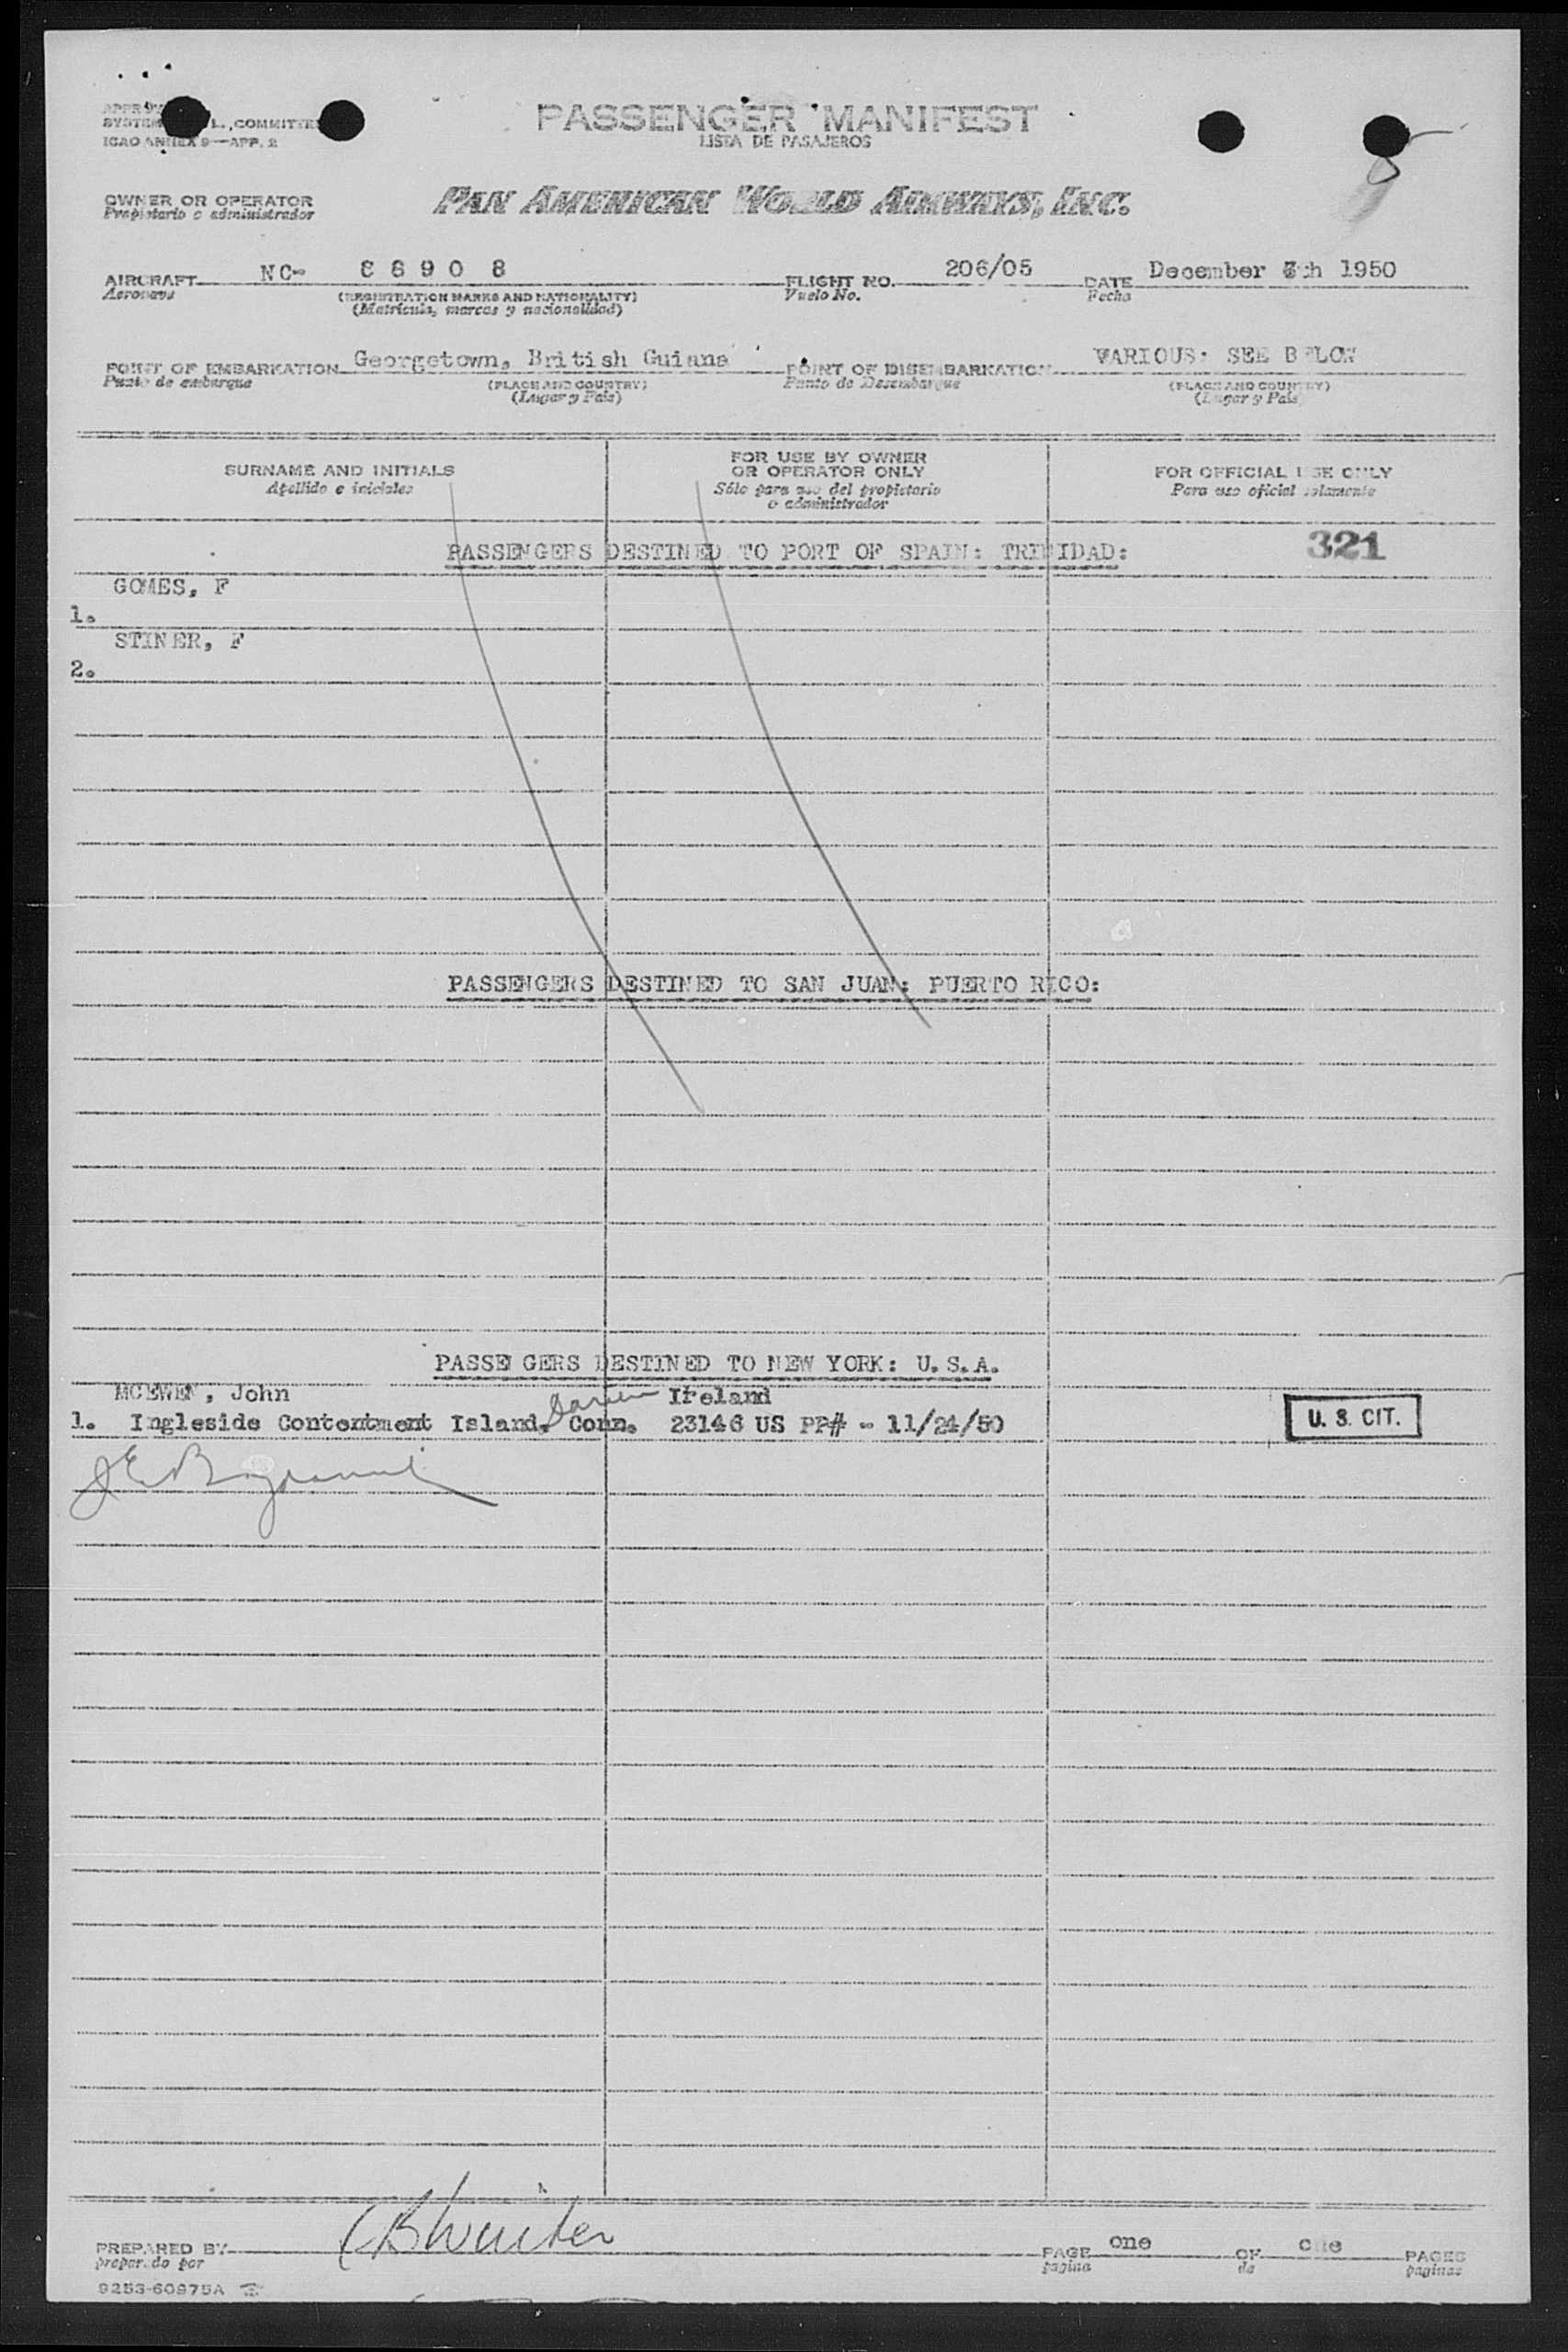 PASSENGER MANIFEST
LISTA DE PASAJEROS
SYSTEM L., COMMITTEE
ICAO ANNEX 9—APP. 2
OWNER OR OPERATOR
Propietario o administrador
PAN AMERICAN WORLD AIRWAYS, INC.
AIRCRAFT NC- 88908 FLIGHT NO. 206/05 DATE December th 1950
Aeronave (REGISTRATION MARKS AND NATIONALITY) Vuelo No. Fecha
(Matricula, marcas y nacionalidad)
POINT OF EMBARKATION Georgetown, British Guiana POINT OF DISEMBARKATION VARIOUS: SEE BELOW
Punto de embarque (PLACE AND COUNTRY) Punto de Desembarque (PLACE AND COUNTRY)
(Lugar y Pais) (Lugar y Pais)
SURNAME AND INITIALS FOR USE BY OWNER OR OPERATOR ONLY FOR OFFICIAL USE ONLY
Apellido e iniciales Sólo para uso del propietario o administrador Para uso oficial solamente
PASSENGERS DESTINED TO PORT OF SPAIN: TRINIDAD: 321
GOMES, F
1.
STINER, F
2.
PASSENGERS DESTINED TO SAN JUAN: PUERTO RICO:
PASSENGERS DESTINED TO NEW YORK: U.S.A.
MCEWEN, John Darien Ireland
1. Ingleside Contentment Island, Conn. 23146 US PP# - 11/24/50 U. S. CIT.
PREPARED BY PAGE one OF one PAGES
preparado por pagina de paginas
9253-60975A